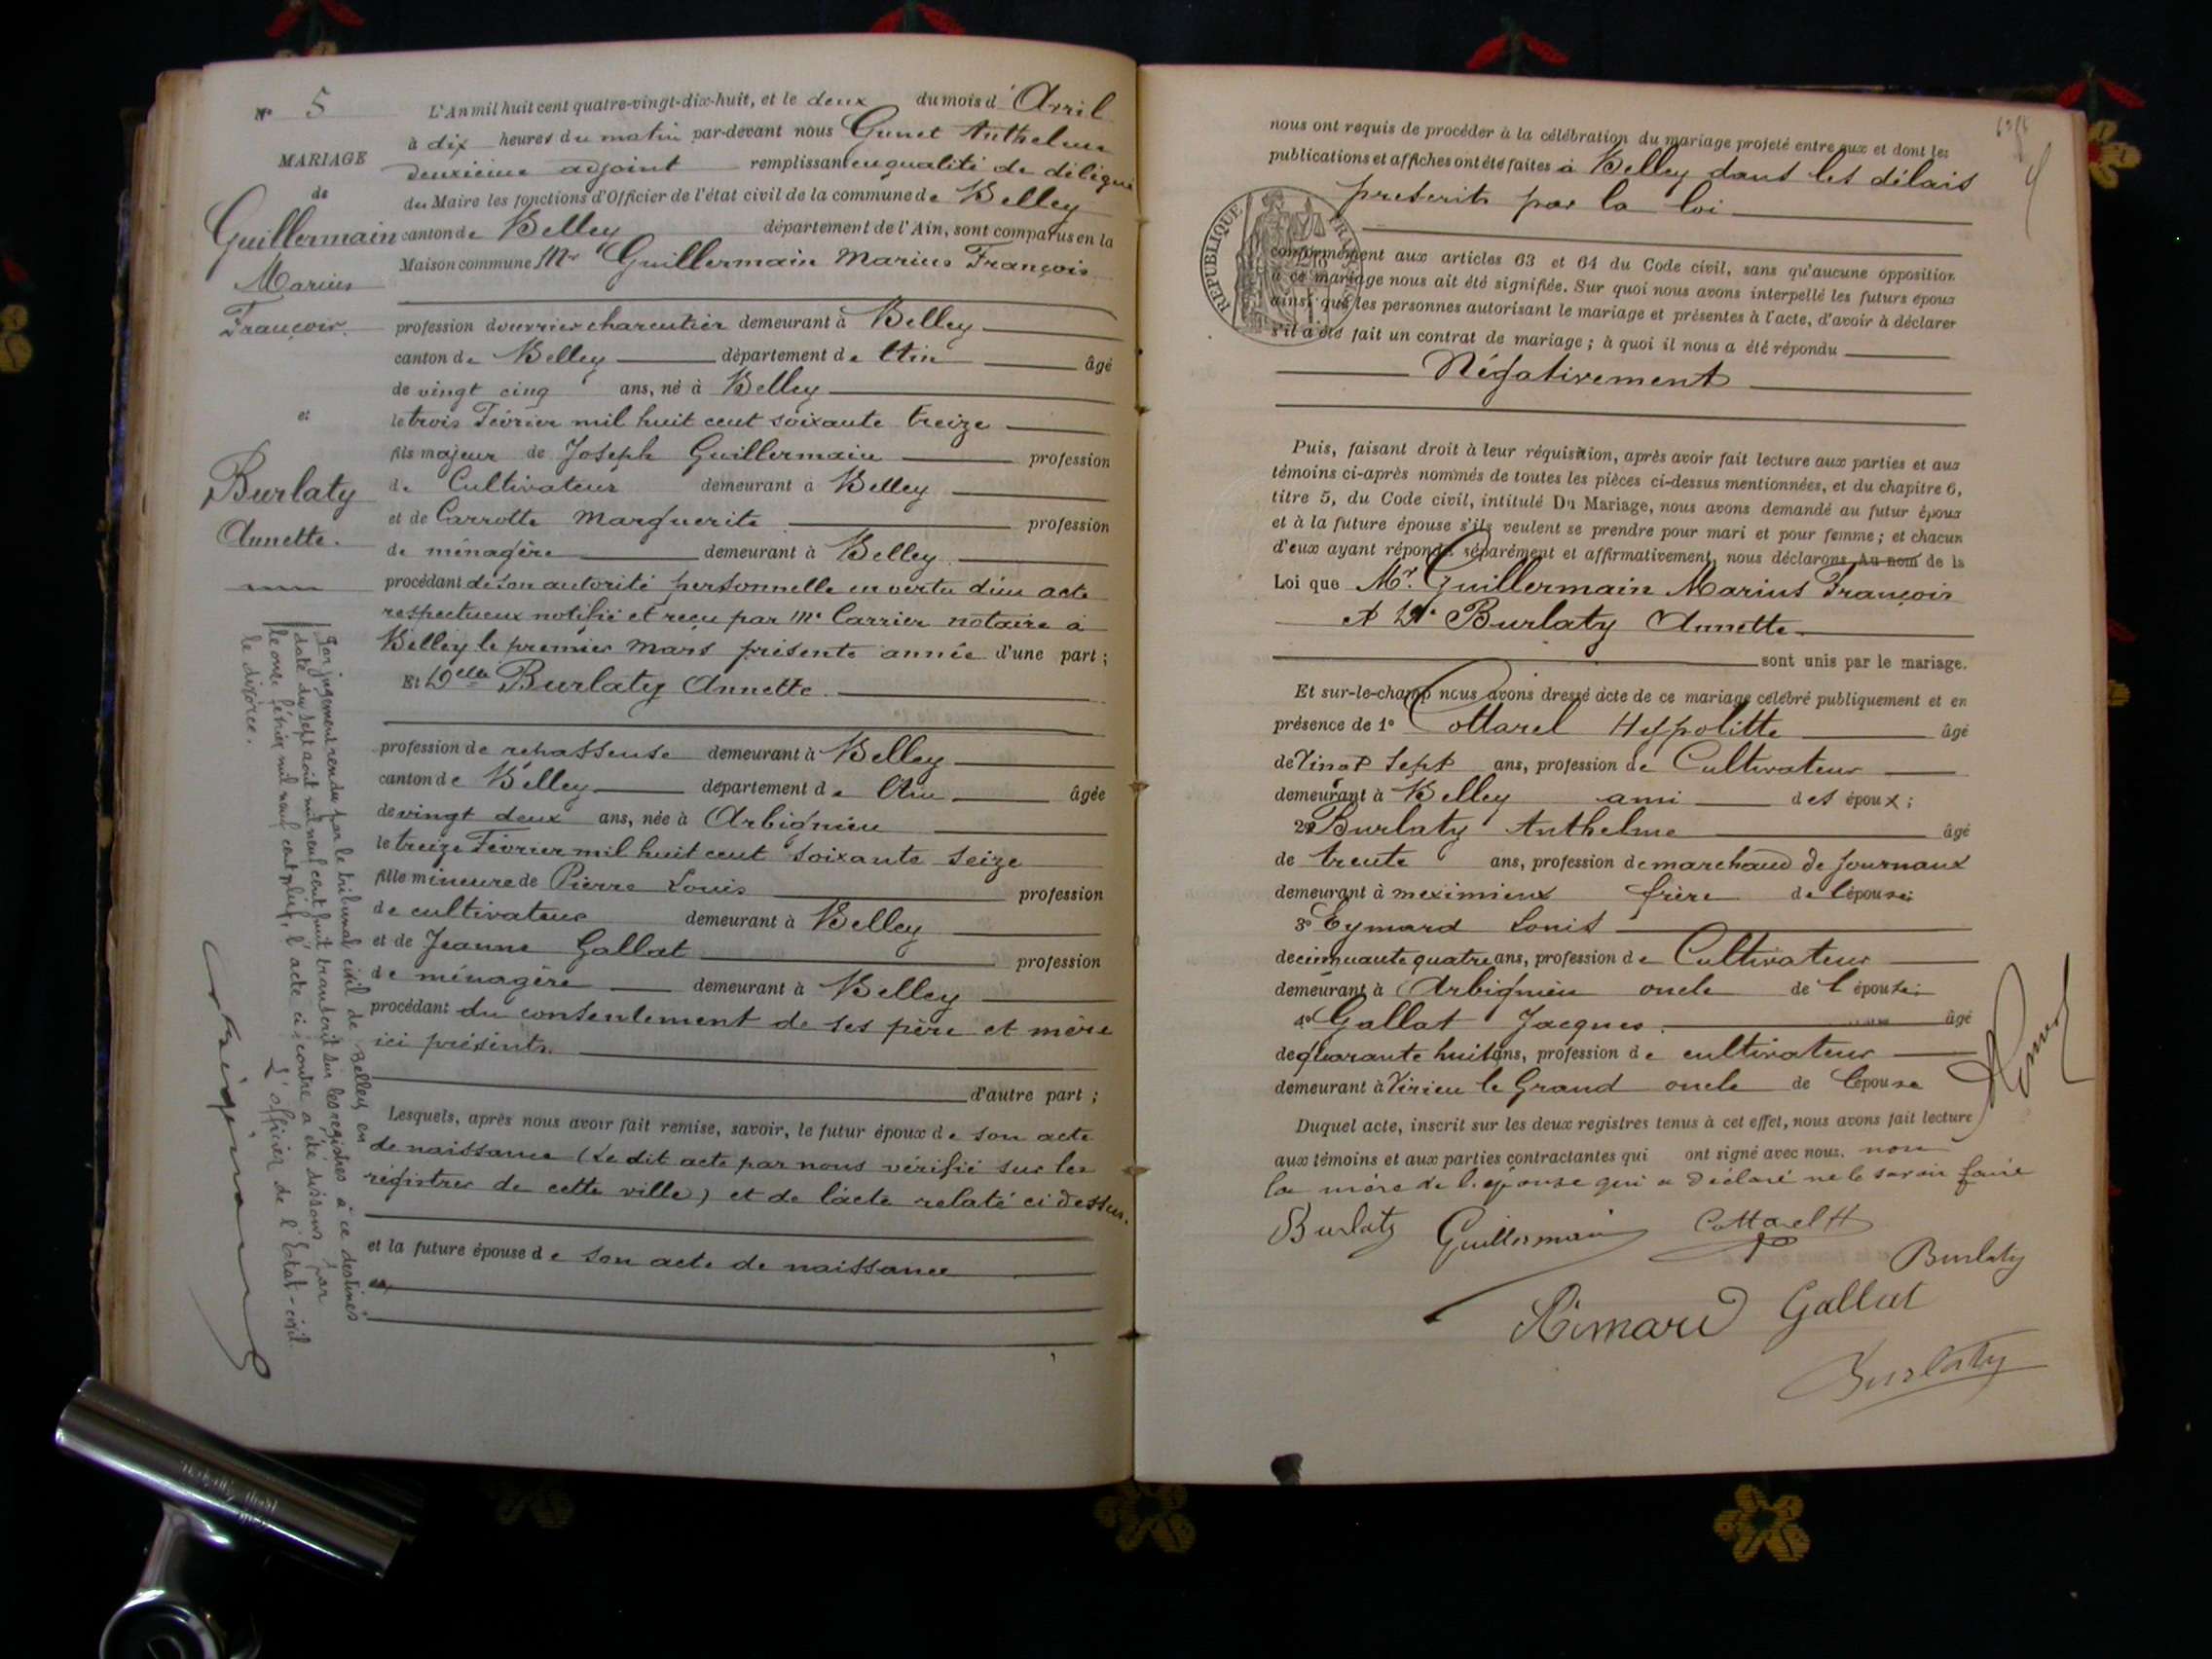 Nº 5
MARIAGE
de
Guillermain
Marius
François.
et
Burlaty
Annette.
L'An mil huit cent quatre-vingt-dix-huit, et le deux du mois d'Avril
à dix heures du matin par-devant nous Gunet Anthelme
deuxième adjoint remplissant en qualité de délégué
du Maire les fonctions d'Officier de l'état civil de la commune de Belley
canton de Belley département de l'Ain, sont comparus en la
Maison commune Mr Guillermain Marius François
profession d'ouvrier charcutier demeurant à Belley
canton de Belley département de l'Ain âgé
de vingt cinq ans, né à Belley
le trois Février mil huit cent soixante treize
fils majeur de Joseph Guillermain profession
de Cultivateur demeurant à Belley
et de Carrotte Marguerite profession
de ménagère demeurant à Belley
procédant de son autorité personnelle en vertu d'un acte
respectueux notifié et reçu par Me Carrier notaire à
Belley le premier Mars présente année d'une part ;
Et Delle Burlaty Annette.
profession de repasseuse demeurant à Belley
canton de Belley département de l'Ain âgée
de vingt deux ans, née à Arbignieu
le treize Février mil huit cent soixante seize
fille mineure de Pierre Louis profession
de cultivateur demeurant à Belley
et de Jeanne Gallat profession
de ménagère demeurant à Belley
procédant du consentement de ses père et mère
ici présents.
d'autre part ;
Lesquels, après nous avoir fait remise, savoir, le futur époux de son acte
de naissance (Le dit acte par nous vérifié sur les
régistres de cette ville) et de l'acte relaté ci dessus.
et la future épouse de son acte de naissance
Par jugement rendu par le tribunal civil de Belley en
date du sept août mil neuf cent huit transcrit sur les registres à ce destinés
le onze février mil neuf cent neuf, l'acte ci contre a été dissous par
le divorce. L'officier de l'Etat-civil.
nous ont requis de procéder à la célébration du mariage projeté entre eux et dont les
publications et affiches ont été faites à Belley dans les délais
prescrits par la loi
REPUBLIQUE FRA
conformément aux articles 63 et 64 du Code civil, sans qu'aucune opposition
à ce mariage nous ait été signifiée. Sur quoi nous avons interpellé les futurs époux
ainsi que les personnes autorisant le mariage et présentes à l'acte, d'avoir à déclarer
s'il a été fait un contrat de mariage ; à quoi il nous a été répondu
Négativement
Puis, faisant droit à leur réquisition, après avoir fait lecture aux parties et aux
témoins ci-après nommés de toutes les pièces ci-dessus mentionnées, et du chapitre 6,
titre 5, du Code civil, intitulé Du Mariage, nous avons demandé au futur époux
et à la future épouse s'ils veulent se prendre pour mari et pour femme ; et chacun
d'eux ayant répondu séparément et affirmativement, nous déclarons Au nom de la
Loi que Mr. Guillermain Marius François
et Dlle Burlaty Annette
sont unis par le mariage.
Et sur-le-champ nous avons dressé acte de ce mariage célébré publiquement et en
présence de 1º Cottarel Hyppolitte âgé
de Vingt Sept ans, profession de Cultivateur
demeurant à Belley ami des époux ;
2º Burlaty Anthelme âgé
de trente ans, profession de marchand de journaux
demeurant à meximieux frère de l'épouse;
3º Eymard Louis
de cinquante quatre ans, profession de Cultivateur
demeurant à Arbignieu oncle de l'épouse;
4º Gallat Jacques. âgé
de quarante huit ans, profession de cultivateur
demeurant à Virieu le Grand oncle de l'épouse
Duquel acte, inscrit sur les deux registres tenus à cet effet, nous avons fait lecture
aux témoins et aux parties contractantes qui ont signé avec nous. non
la mère de l'épouse qui a déclaré ne le savoir faire
Burlaty Guillermain Cottarel H
Burlaty
Gallat
Burlaty